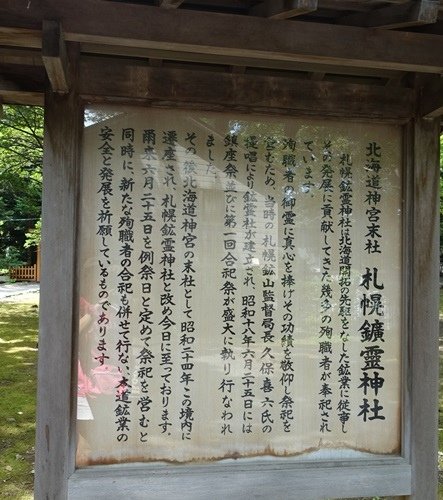 北海道神宮末社　札幌鑛霊神社
札幌鉱霊神社は北海道開拓の先駆をなした鉱業に従事し
その発展に貢献してきた幾多の殉職者が奉祀され
ています。
殉職者の御霊に真心を捧げその功績を敬仰し祭祀を
営むため、当時の札幌鉱山監督局長久保喜六氏の
提唱により鉱霊社が建立され、昭和十八年六月二十五日には
鎮座祭並びに第一回合祀祭が盛大に執り行なわれ
ました。
その後北海道神宮の末社として昭和二十四年この境内に
遷座され、札幌鉱霊神社と改め今日に至っております。
爾来六月二十五日を例祭日と定めて祭祀を営むと
同時に、新たな殉職者の合祀も併せて行ない、本道鉱業の
安全と発展を祈願しているものであります。